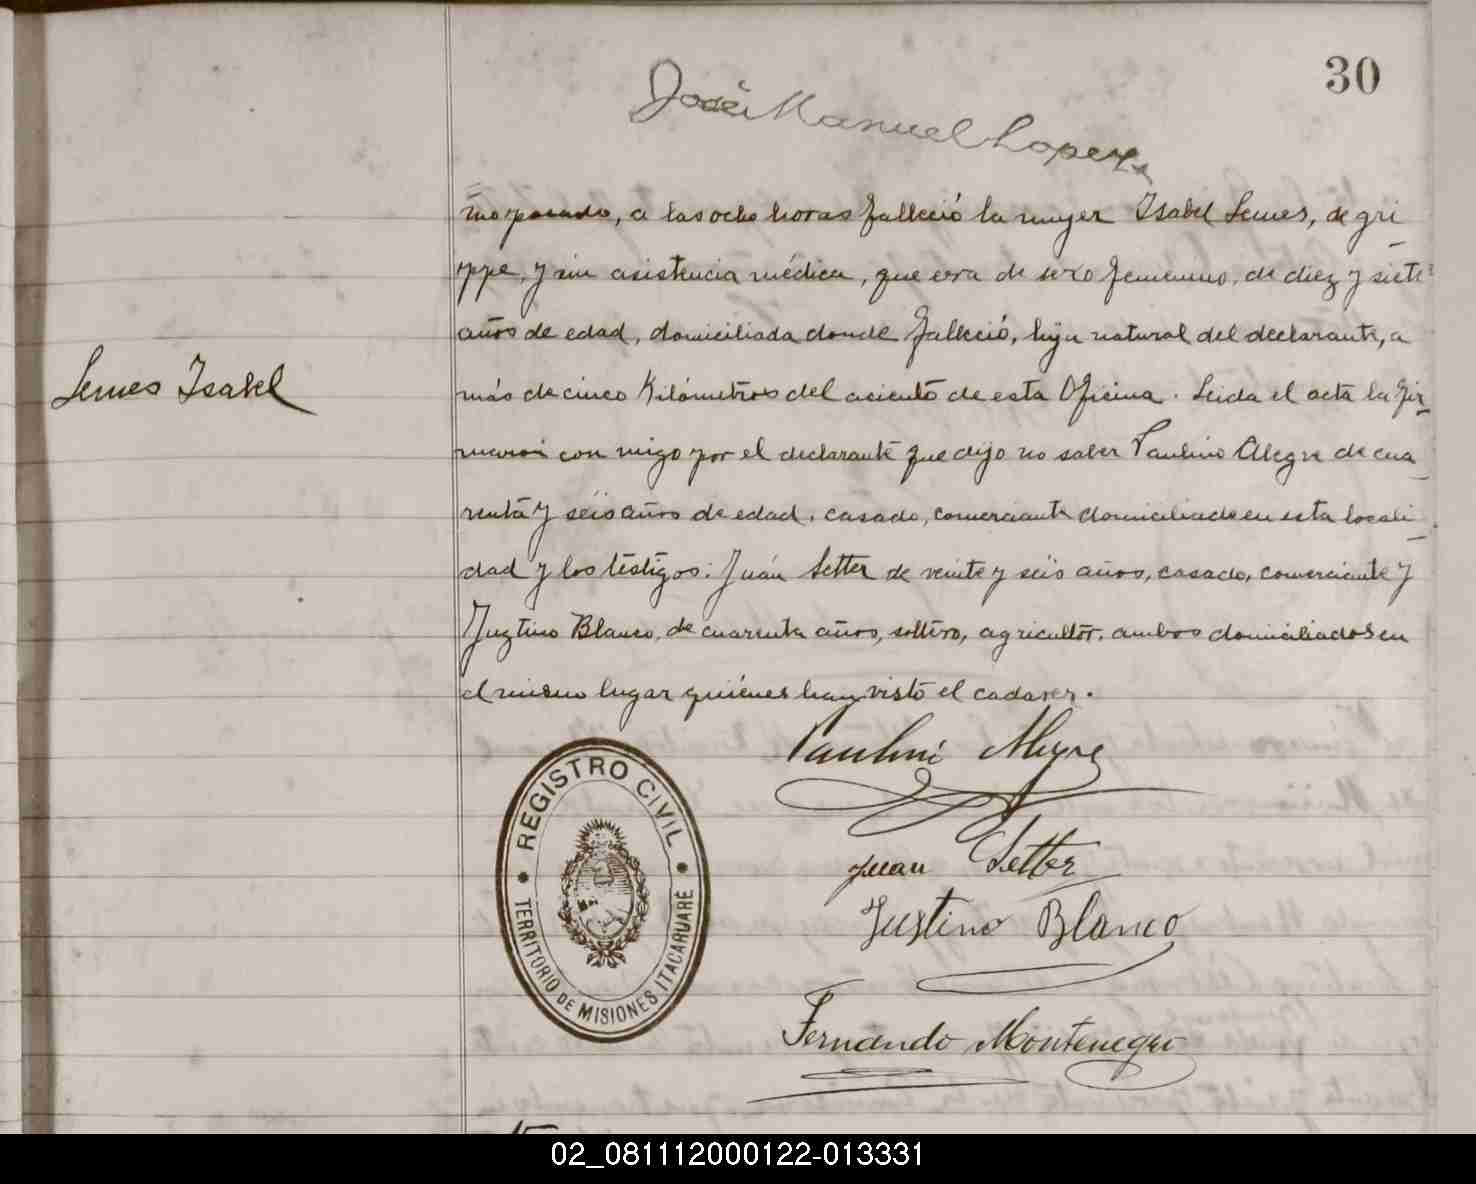 30
José Manuel Lopez
mo pasado, a las ocho horas falleció la mujer Isabel Lemes, de gri
ppe, y sin asistencia médica, que era de sexo femenino, de diez y siete
años de edad, domiciliada donde falleció, hija natural del declarante, a
Lemes Isabel
más de cinco Kilómetros del aciento de esta Oficina. Leida el acta la fir
maron con migo por el declarante que dijo no saber Paulino Alegre de cua
renta y seis años de edad, casado, comerciante domiciliado en esta locali
dad y los testigos: Juán Setter de veinte y seis años, casado, comerciante y
Juztino Blanco, de cuarenta años, soltero, agricultor, ambos domiciliados en
el mismo lugar quiénes han visto el cadaver.
Paulino Alegre
Juan Setter
Justino Blanco
Fernando Montenegro
REGISTRO CIVIL
TERRITORIO DE MISIONES ITACARUARÉ
02_081112000122-013331